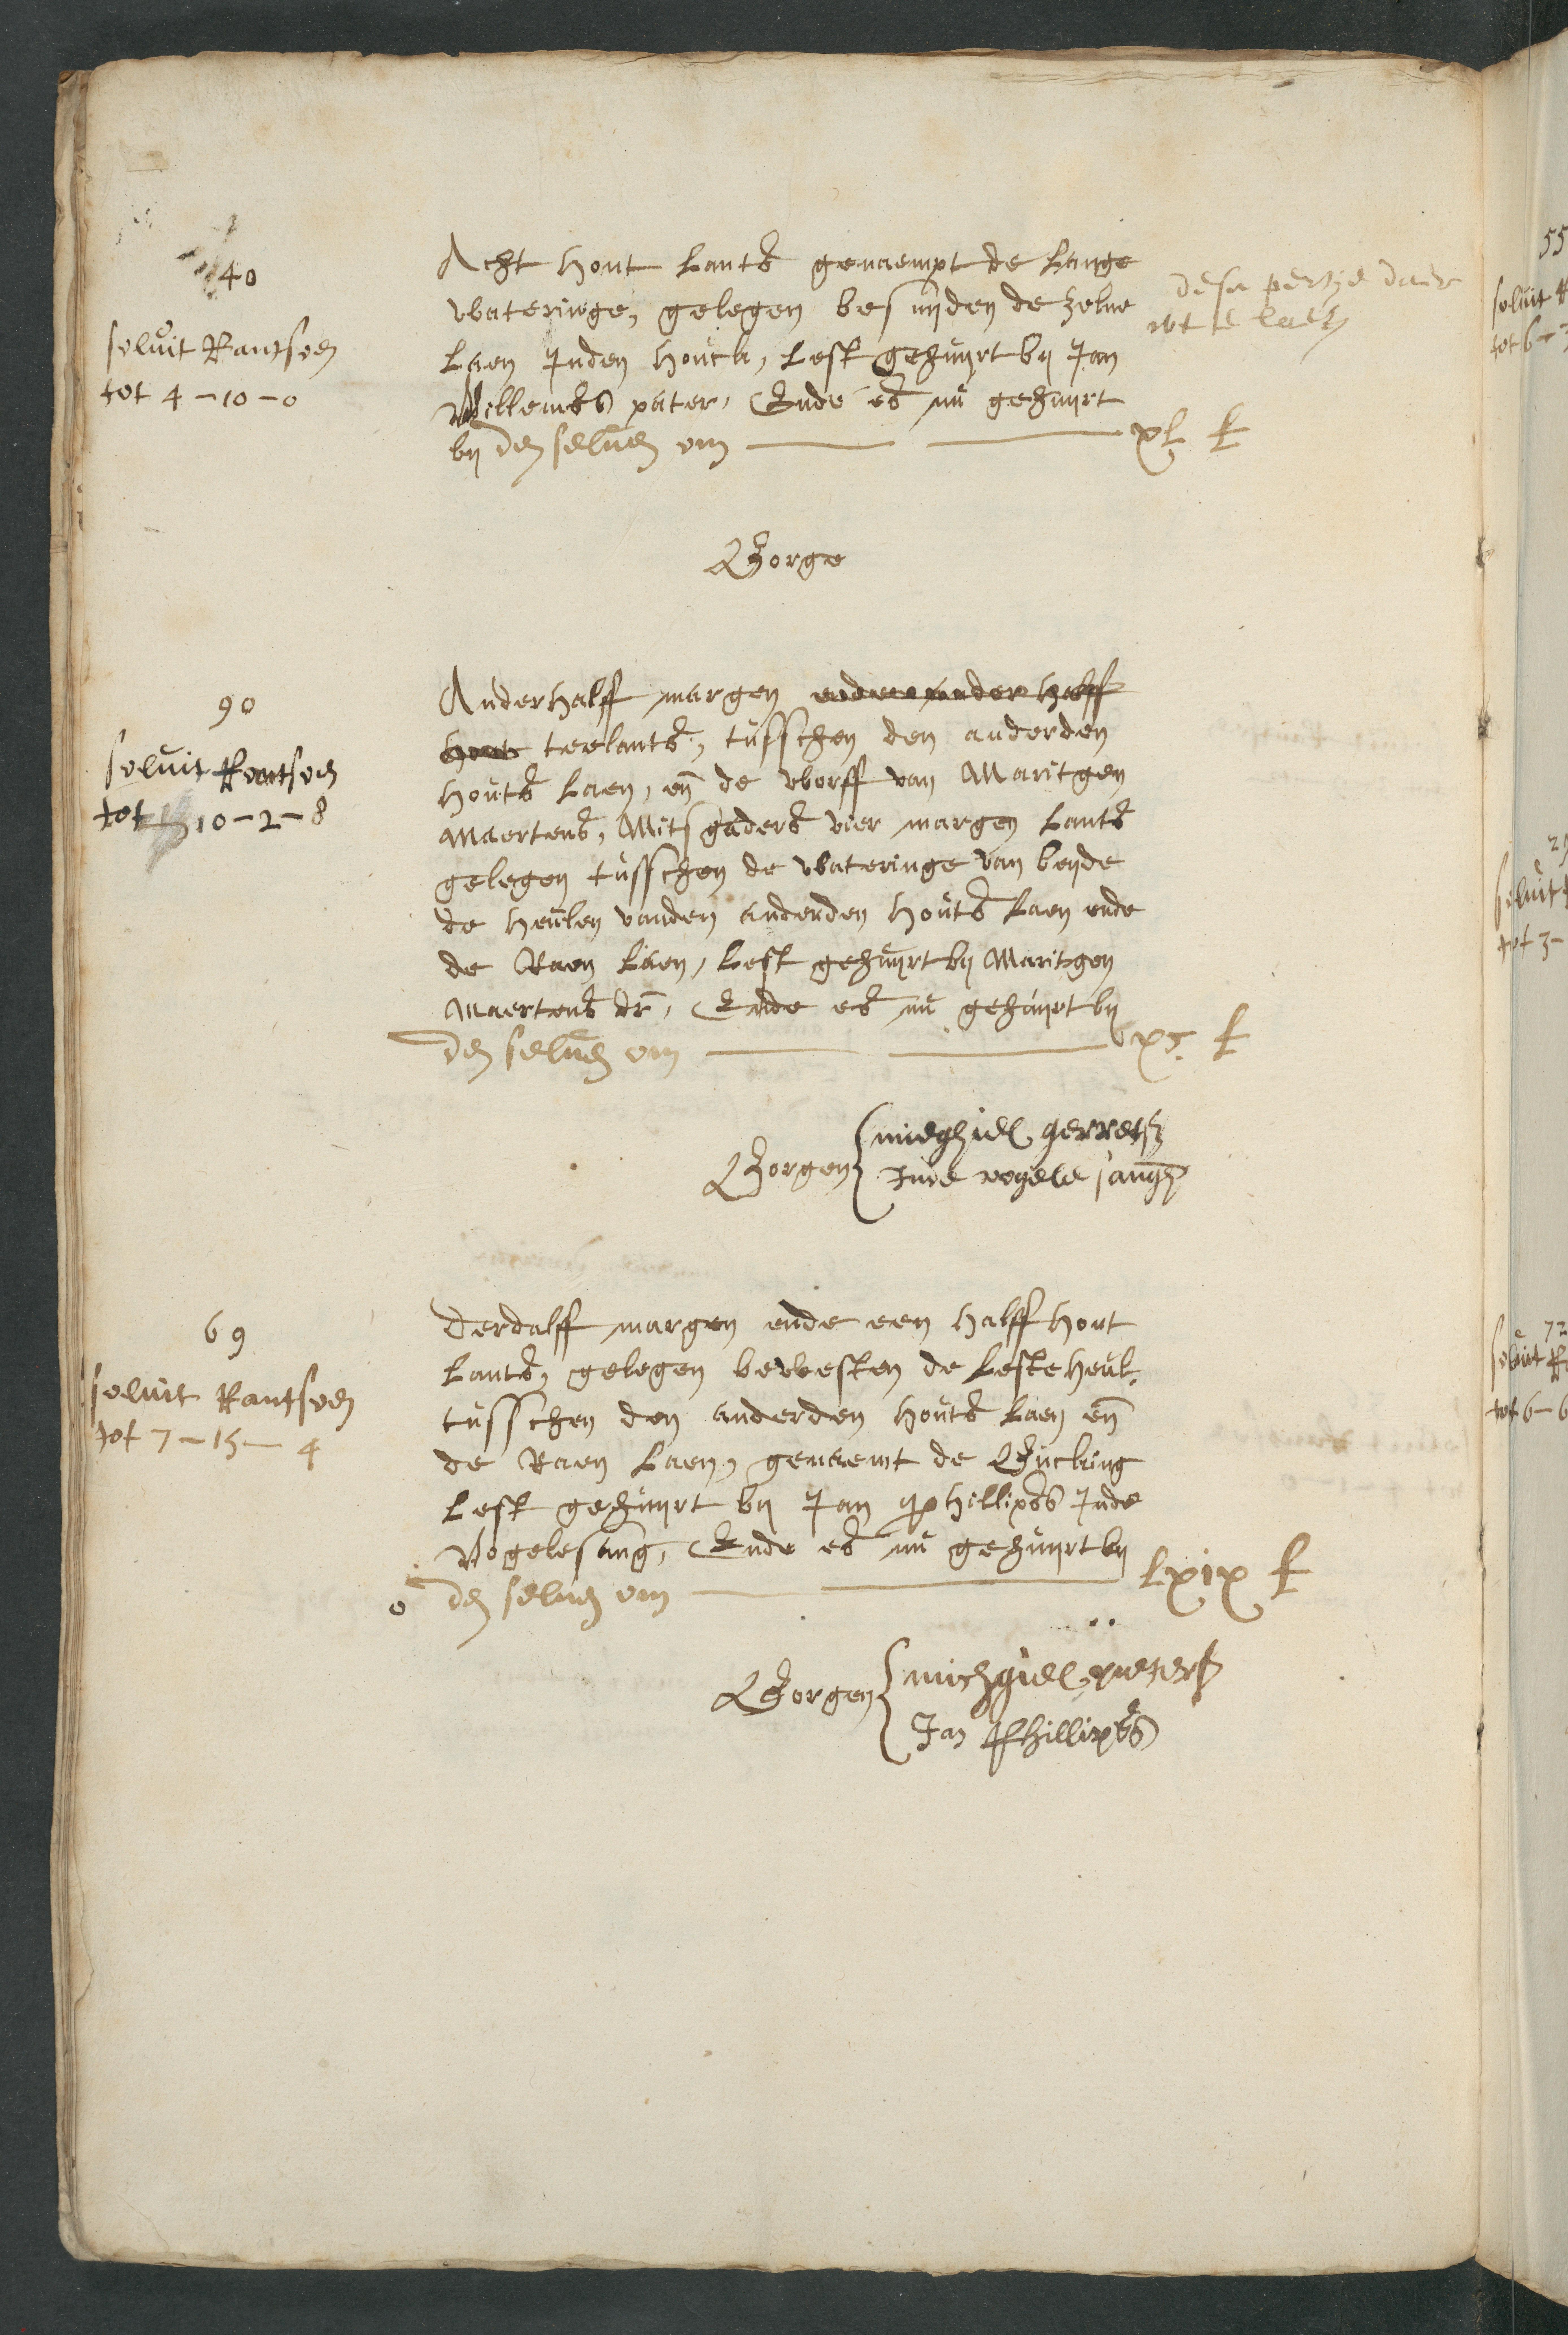 40
solvit Rantsoen
tot 4-10-0
Acht hont Lants genaempt de Lange
wateringe, gelegen besuijden de zelve
Laen Inden houck, Lest gehuijrt bij Jan
Willemss pater, Ende es nu gehuijrt
bij den selven om xl £
dese pertije daer
wt te laeten
Borge
90
solvit Rantsoen
tot 10-2-8
Anderhalff margen ende anderhalff
hont teelants, tusschen den anderden
houts Laen, en de werff van Maritgen
Maertens, Mitsgaders vier margen Lants
gelegen tusschen de wateringe van beijde
de heulen vanden anderden houts Laen ende
de Raen Laen, Lest gehuijrt bij Maritgen
Maertens dr, Ende es nu gehuijrt bij
den selven om xc £
Borgen
mieghiel gerretsz
Inde vogele sangh
69
solvit Rantsoen
tot 7-15-4
Derdalff margen ende een halff hont
Lants, gelegen bewesten de Leste heul
tusschen den anderden houts Laen en
de Raen Laen, genaemt de
Lest gehuijrt bij Jan Phillipss Inde
Vogelesang, Ende es nu gehuijrt bij
o den selven om Lxix £
Borgen
michgiell pietersz
Jan Phillipss
55
solvit
tot 6-
solvit
tot 3-
72
solvit
tot 6-6